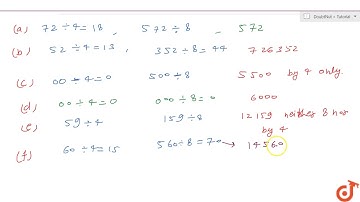 DoubtNut • Tutorial
(a) 72 ÷ 4 = 18 , 572 ÷ 8 - 572
(b) 52 ÷ 4 = 13 , 352 ÷ 8 = 44 726352
(c) 00 ÷ 4 = 0 500 ÷ 8 5500 by 4 only
(d) 00 ÷ 4 = 0 000 ÷ 8 = 0 6000
(e) 59 ÷ 4 159 ÷ 8 12159 neither 8 nor
by 4
(f) 60 ÷ 4 = 15 560 ÷ 8 = 70 → 14560